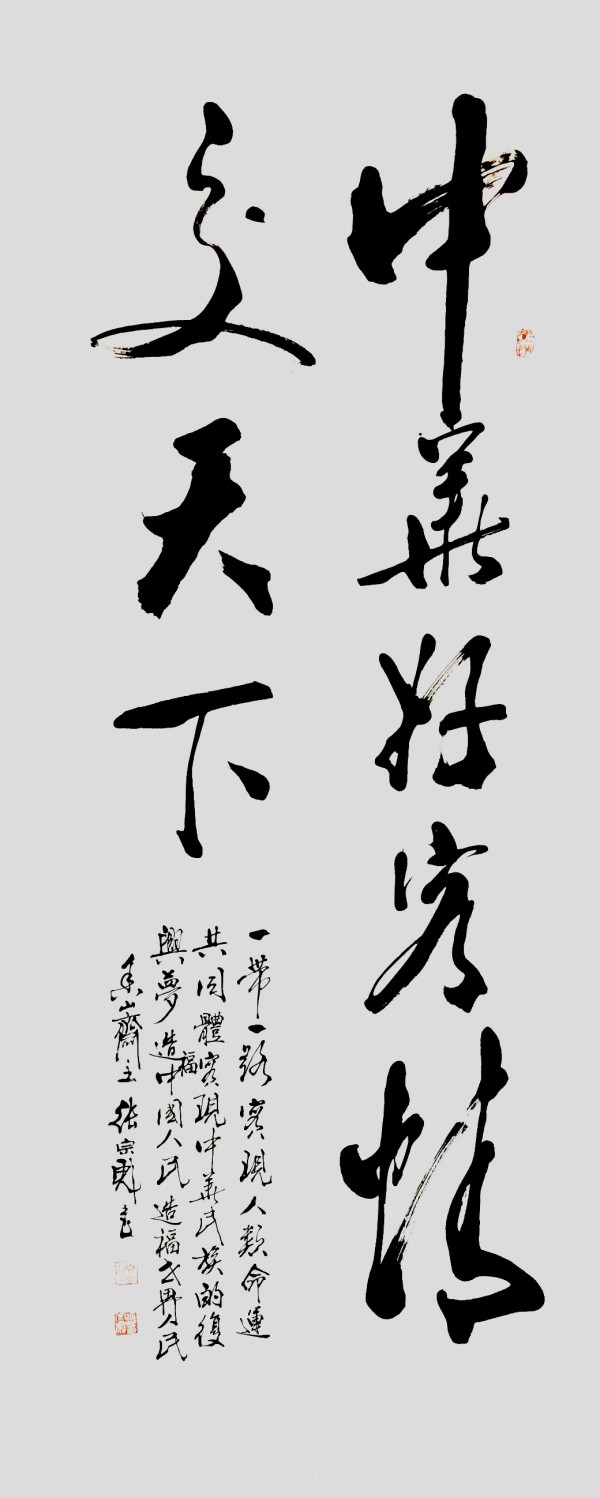 中華好客情
交天下
一帶一路實現人類命運
共同體實現中華民族的復
興夢造福中國人民造福世界人民
山齋主张宗書